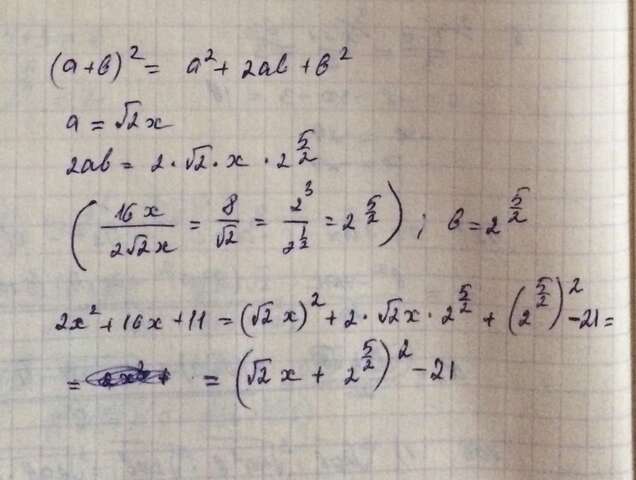 (a+b)² = a² + 2ab + b²
a = √2x
2ab = 2 · √2 · x · 2^(5/2)
(16x/(2√2x) = 8/√2 = 2³/2^(1/2) = 2^(5/2)) ; b = 2^(5/2)
2x² + 16x + 11 = (√2x)² + 2 · √2x · 2^(5/2) + (2^(5/2))² - 21 =
= = (√2x + 2^(5/2))² - 21